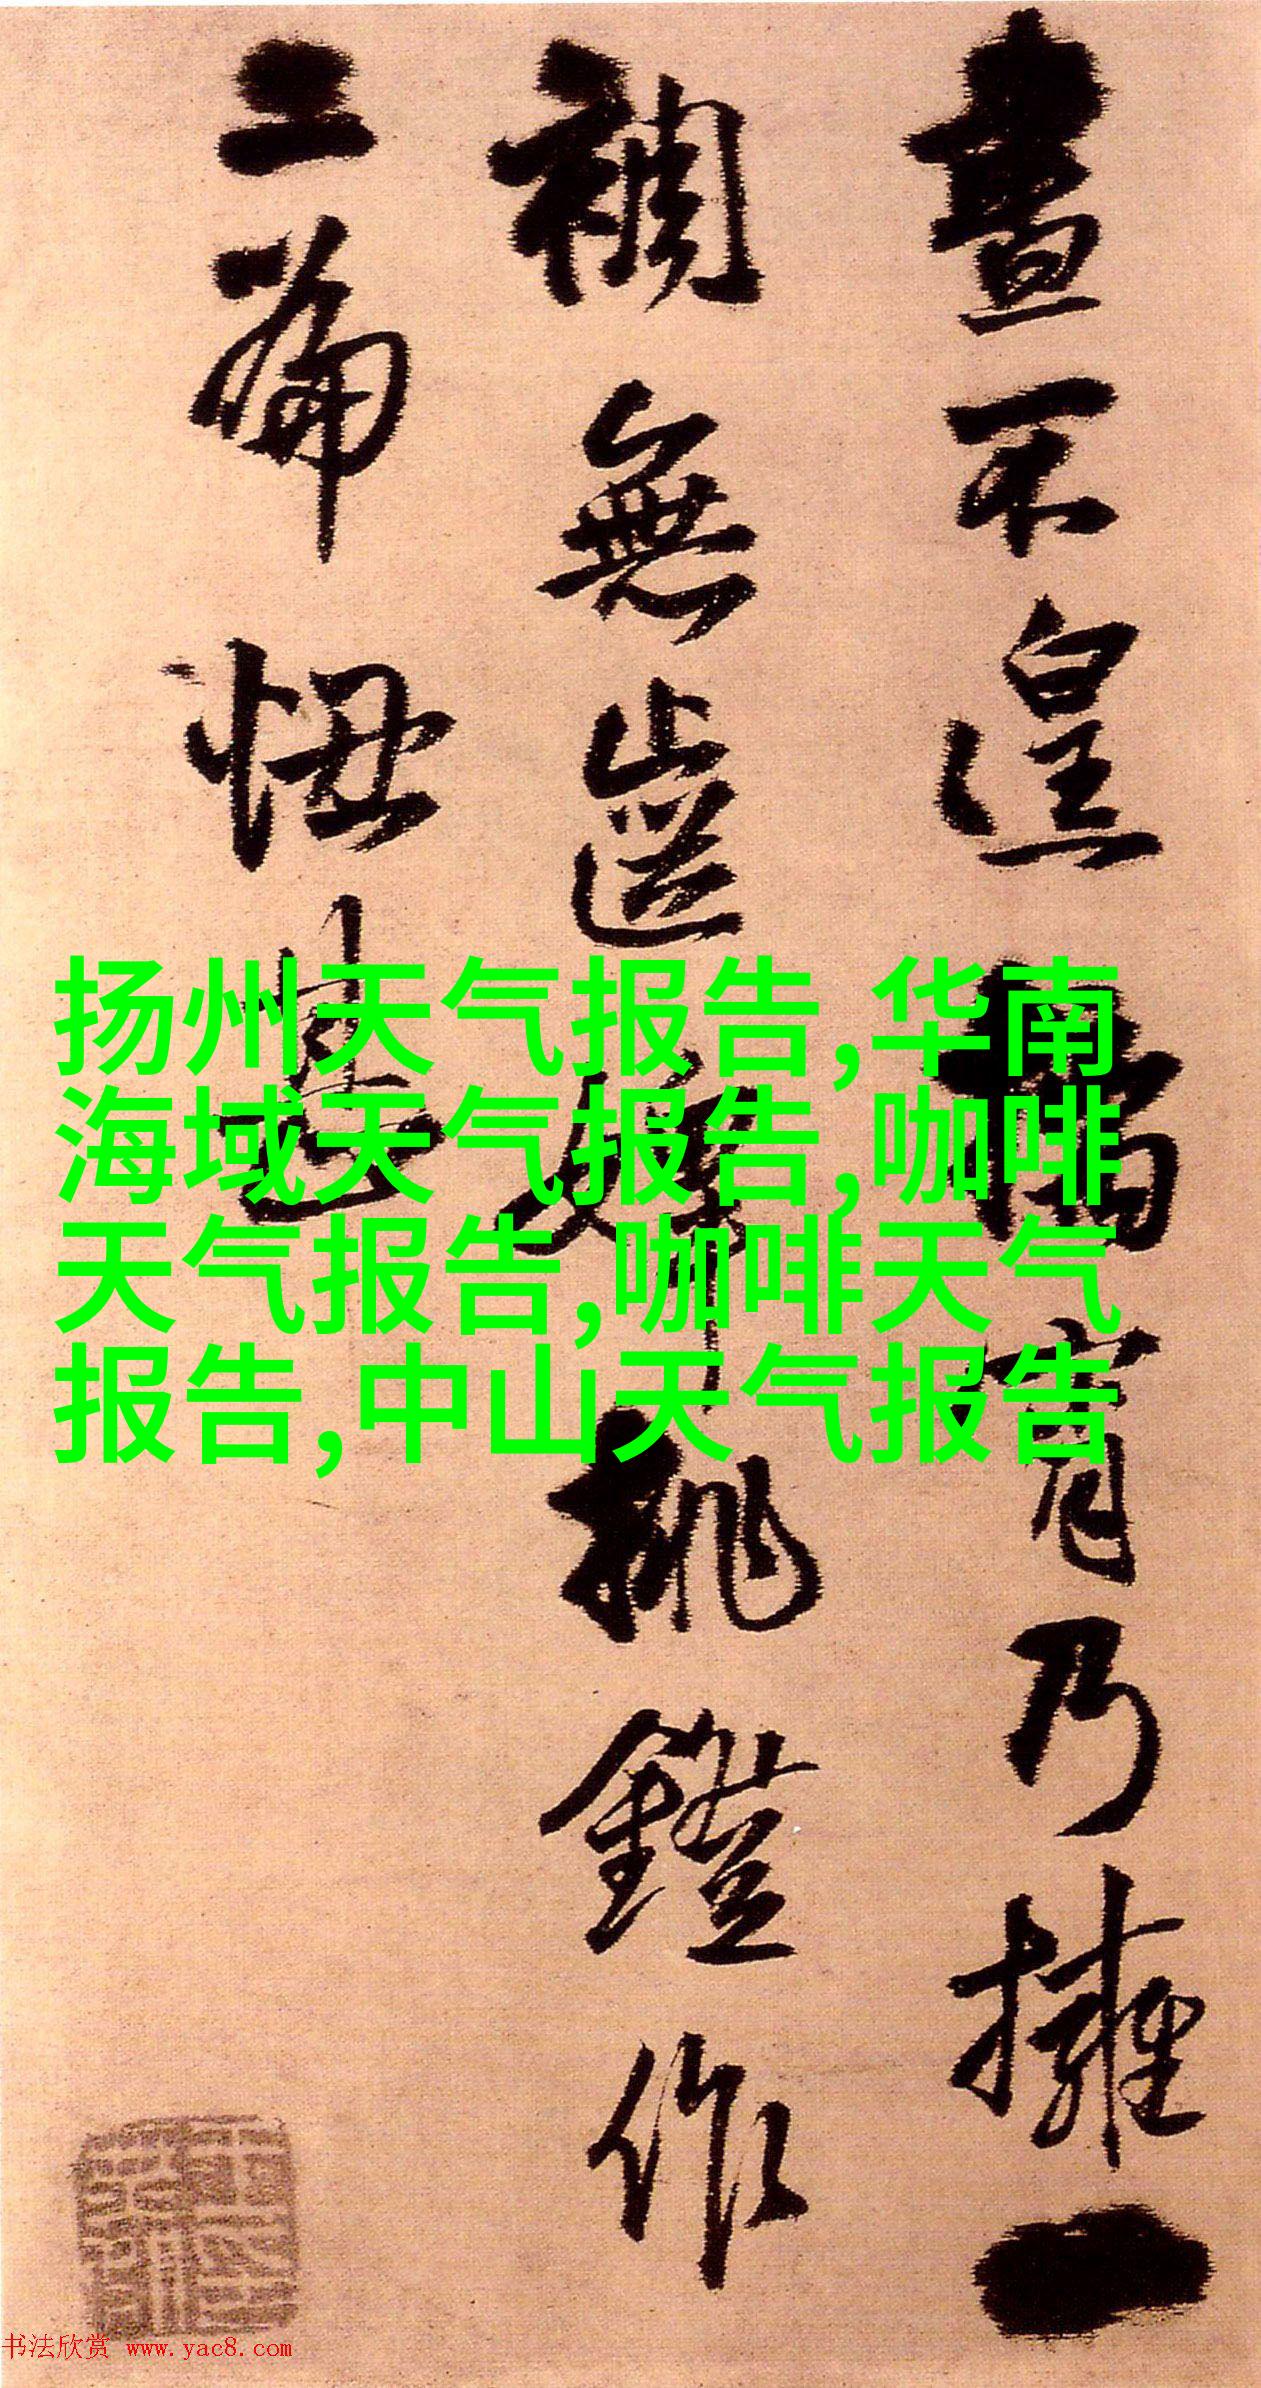 晝不遑宵乃擁一
裯無挑鐙作
二篇
扬州天气报告,华南
海域天气报告,咖啡
天气报告,咖啡天气
报告,中山天气报告
书法欣赏 www.yac8.com